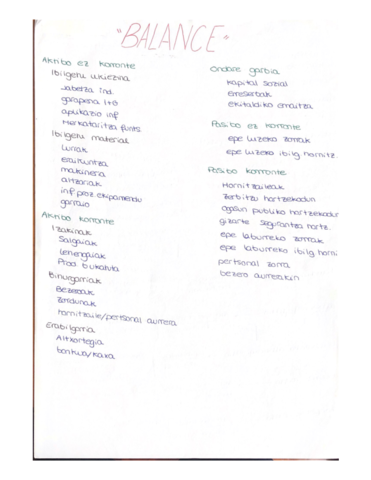 "BALANCE"
Aktibo ez korronte
Ibilgetu ukiezina
Jabetza ind.
garapena I+G
aplikazio inf
Merkataritza funts.
Ibilgetu material
lurrak
eraikuntza
makineria
altzariak
inf proz ekipamendu
garraio
Aktibo korronte
Izakinak
Salgaiak
Lehengaiak
Prod bukatuta
Bihurgarriak
Bezeroak
Zordunak
hornitzaile/pertsonal aurrera
Erabilgarria
Altxortegia
bankua/kaxa
Ondare garbia
kapital sozial
erreserbak
ekitaldiko emaitza
Pasibo ez korronte
epe luzeko zorrak
epe luzeko ibilg hornitz.
Pasibo korronte
Hornitzaileak
Zerbitzu hartzekodun
ogasun publiko hartzekodun
gizarte segurantza hartz.
epe laburreko zorrak
epe laburreko ibilg horni
pertsonal zorra
bezero aurrerakin